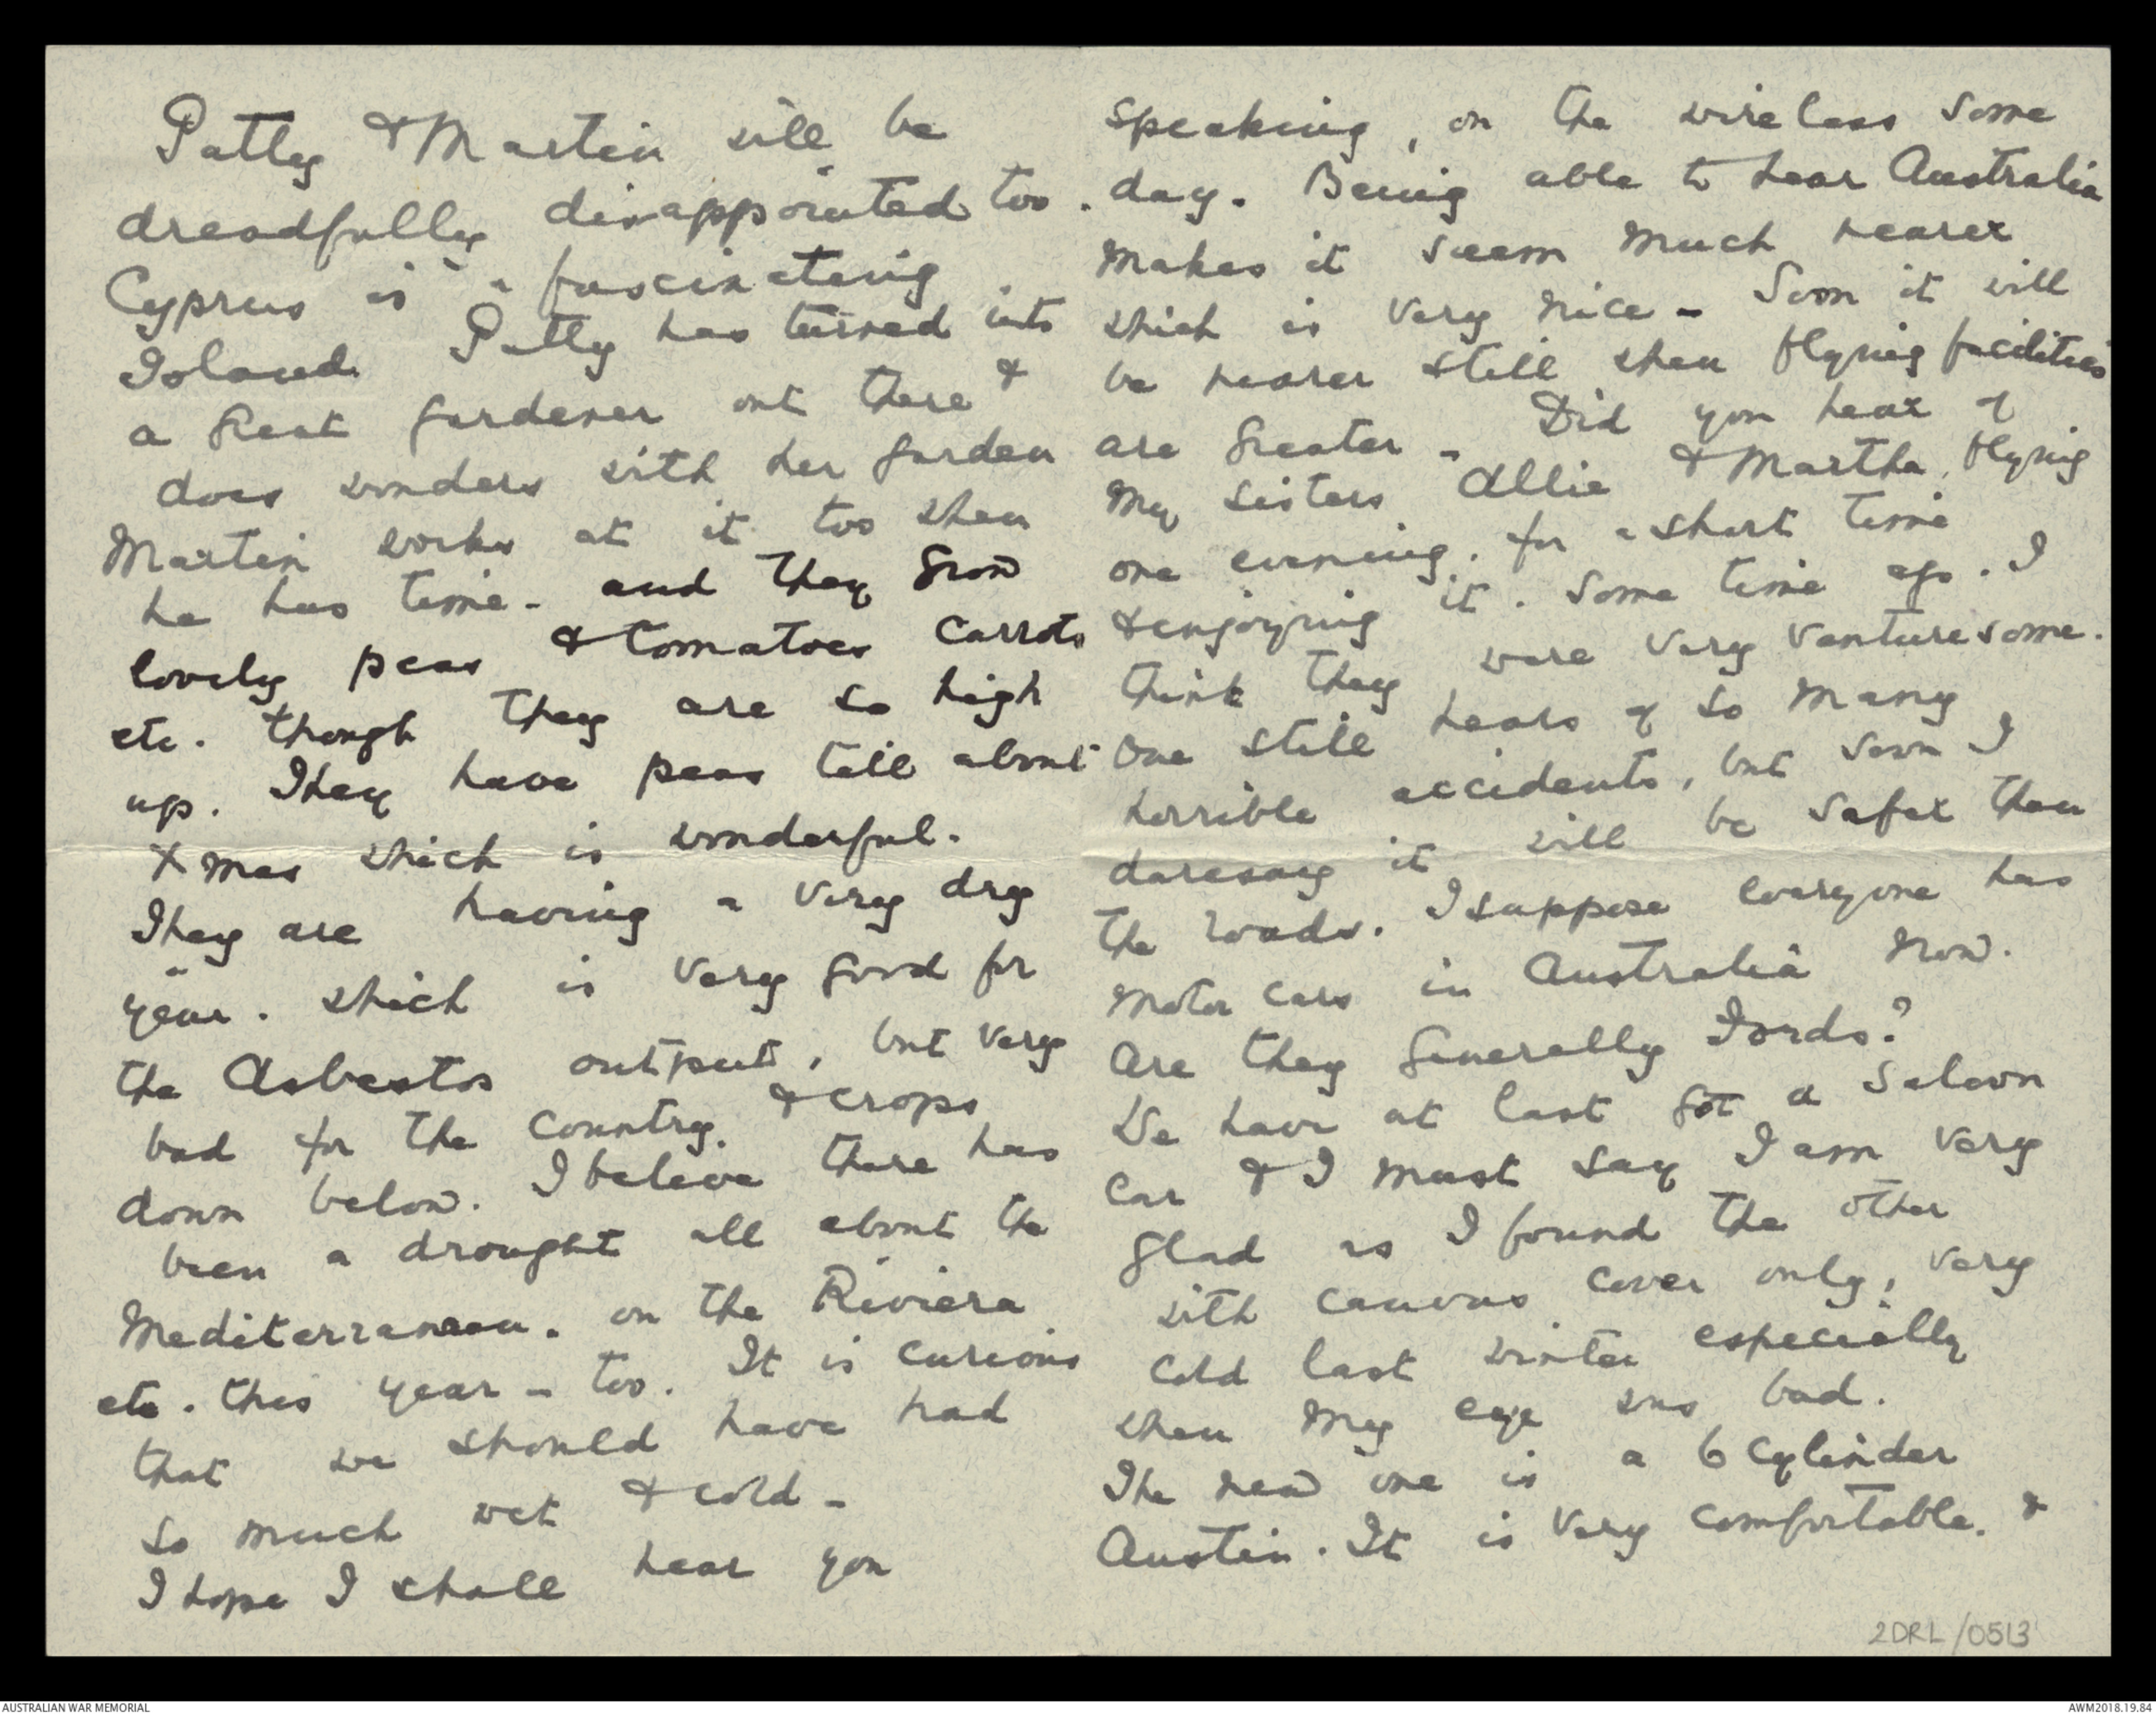 Patty & Martin will be
dreadfully disappointed too.
Cyprus is a fascinating
Island. Patty has turned into
a great gardener out there &
does wonders with her garden
Martin works at it too when
he has time - and they grow
lovely peas & tomatoes carrots
etc. though they are so high
up. They have peas till about
Xmas which is wonderful.
They are having a very dry
year. which is very good for
the Asbestos output, but very
bad for the country. & crops
down below. I believe there has
been a drought all about the
Mediterranean. on the Riviera
etc. this year - too. It is curious
that we should have had
so much wet & cold -
I hope I shall hear you
speaking, on the wireless some
day. Being able to hear Australia
makes it seem much nearer
which is very nice - Soon it will
be nearer still when flying facilities
are greater - Did you hear of
my sisters Allie & Martha, flying
one evening. for a short time
& enjoying it. Some time ago. I
think they were very venturesome.
One still hears of so many
horrible accidents, but soon I
daresay it will be safer than
the roads. I suppose everyone has
motor cars in Australia now.
Are they generally Fords?
We have at last got a Saloon
car & I must say I am very
glad as I found the other
with canvas cover only, very
cold last winter especially
when my eye was bad.
The new one is a 6 cylinder
Austin. It is very comfortable. &
2DRL/0513
AUSTRALIAN WAR MEMORIAL
AWM2018.19.84